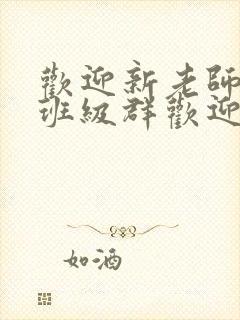 歡迎新老師
班級群歡迎
如酒